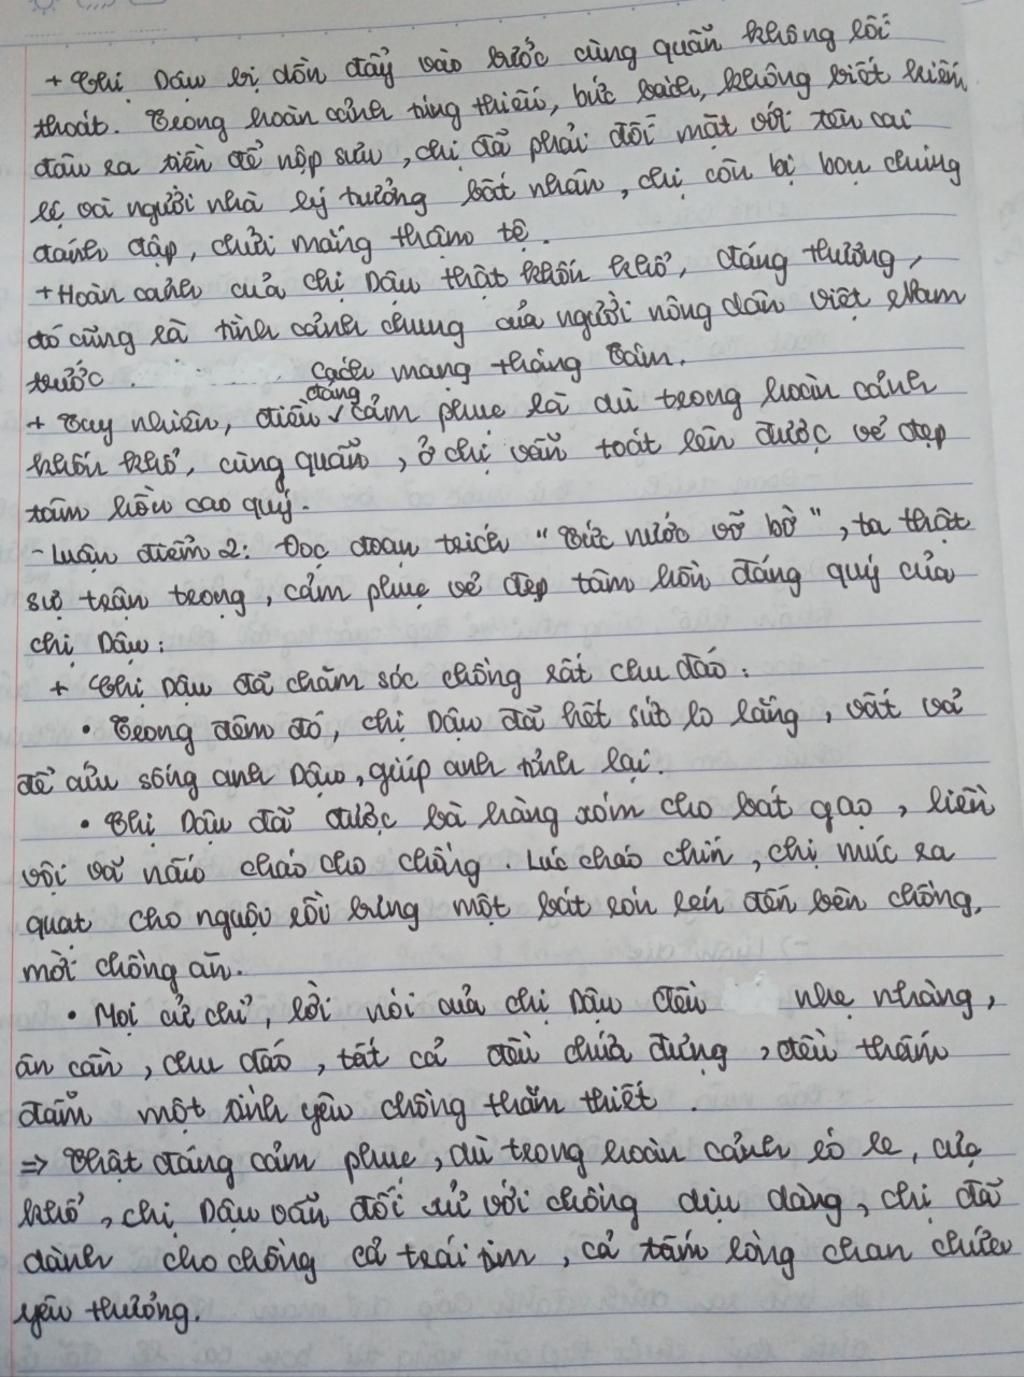 + Chị Dậu bị dồn đẩy vào bước cùng quẫn không lối
thoát. Trong hoàn cảnh túng thiếu, bức bách, không biết kiếm
đâu ra tiền để nộp sưu, chị đã phải đối mặt với tên cai
lệ và người nhà lý trưởng bất nhân, chị còn bị bọn chúng
đánh đập, chửi mắng thậm tệ.
+ Hoàn cảnh của chị Dậu thật khốn khổ, đáng thương,
đó cũng là tình cảnh chung của người nông dân Việt Nam
trước cách mạng tháng Tám.
+ Tuy nhiên, điều đáng cảm phục là dù trong hoàn cảnh
khốn khổ, cùng quẫn, ở chị vẫn toát lên được vẻ đẹp
tâm hồn cao quý.
- Luận điểm 2: Đọc đoạn trích "Tức nước vỡ bờ", ta thật
sự trân trọng, cảm phục vẻ đẹp tâm hồn đáng quý của
chị Dậu:
+ Chị Dậu đã chăm sóc chồng rất chu đáo:
• Trong đêm đó, chị Dậu đã hết sức lo lắng, vất vả
để cứu sống anh Dậu, giúp anh tỉnh lại.
• Chị Dậu đã được bà hàng xóm cho bát gạo, liền
vội vã nấu cháo cho chồng. Lúc cháo chín, chị múc ra
quạt cho nguội rồi bưng một bát rón rén đến bên chồng,
mời chồng ăn.
• Mọi cử chỉ, lời nói của chị Dậu đều nhẹ nhàng,
ân cần, chu đáo, tất cả đều chứa đựng, đều thấm
đẫm một tình yêu chồng thắm thiết.
⇒ Thật đáng cảm phục, dù trong hoàn cảnh éo le, cực
khổ, chị Dậu vẫn đối xử với chồng dịu dàng, chị đã
dành cho chồng cả trái tim, cả tấm lòng chan chứa
yêu thương.